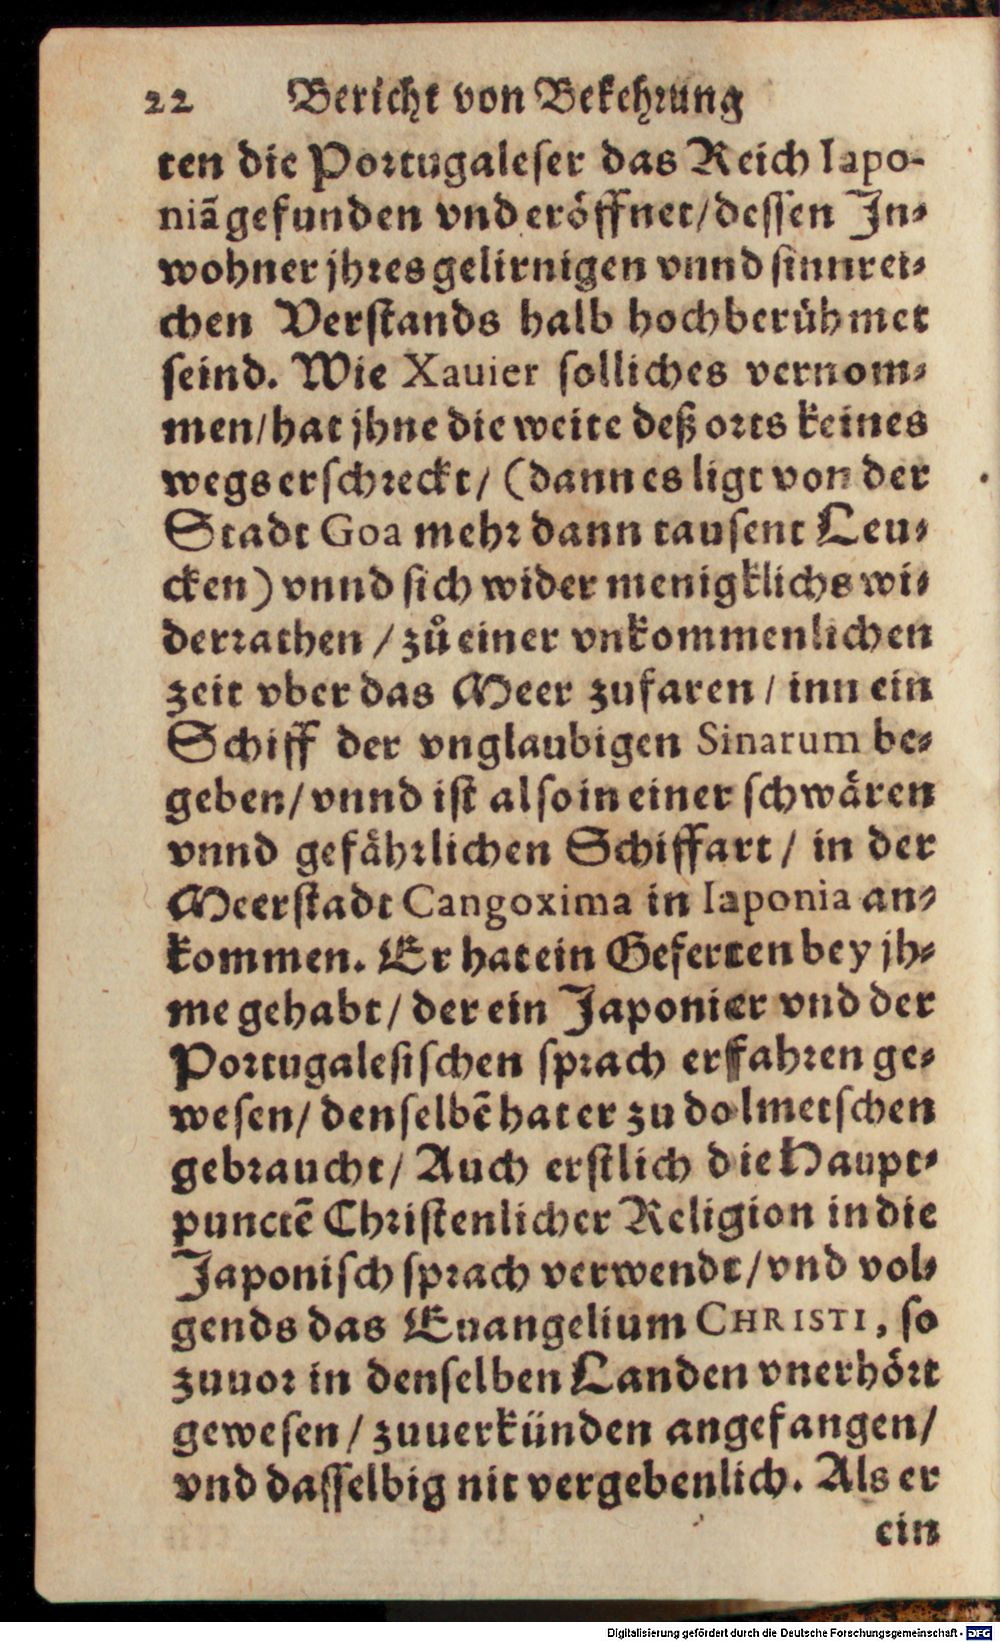 22 Bericht von Bekehrung
ten die Portugaleser das Reich Iapo-
niã gefunden vnd eröffnet / dessen In-
wohner jhres gelirnigen vnnd sinnrei-
chen Verstands halb hochberühmet
seind. Wie Xauier solliches vernom-
men / hat jhne die weite deß orts keines
wegs erschreckt / (dann es ligt von der
Stadt Goa mehr dann tausent Leu-
cken) vnnd sich wider menigklichs wi-
derrathen / zů einer vnkommenlichen
zeit vber das Meer zufaren / inn ein
Schiff der vnglaubigen Sinarum be-
geben / vnnd ist also in einer schwären
vnnd gefährlichen Schiffart / in der
Meerstadt Cangoxima in Iaponia an-
kommen. Er hat ein Geferten bey jh-
me gehabt / der ein Japonier vnd der
Portugalesischen sprach erffahren ge-
wesen / denselbẽ hat er zu dolmetschen
gebraucht / Auch erstlich die Haupt-
punctẽ Christenlicher Religion in die
Japonisch sprach verwendt / vnd vol-
gends das Euangelium CHRISTI, so
zuuor in denselben Landen vnerhört
gewesen / zuuerkünden angefangen /
vnd dasselbig nit vergebenlich. Als er
ein
Digitalisierung gefördert durch die Deutsche Forschungsgemeinschaft - DFG